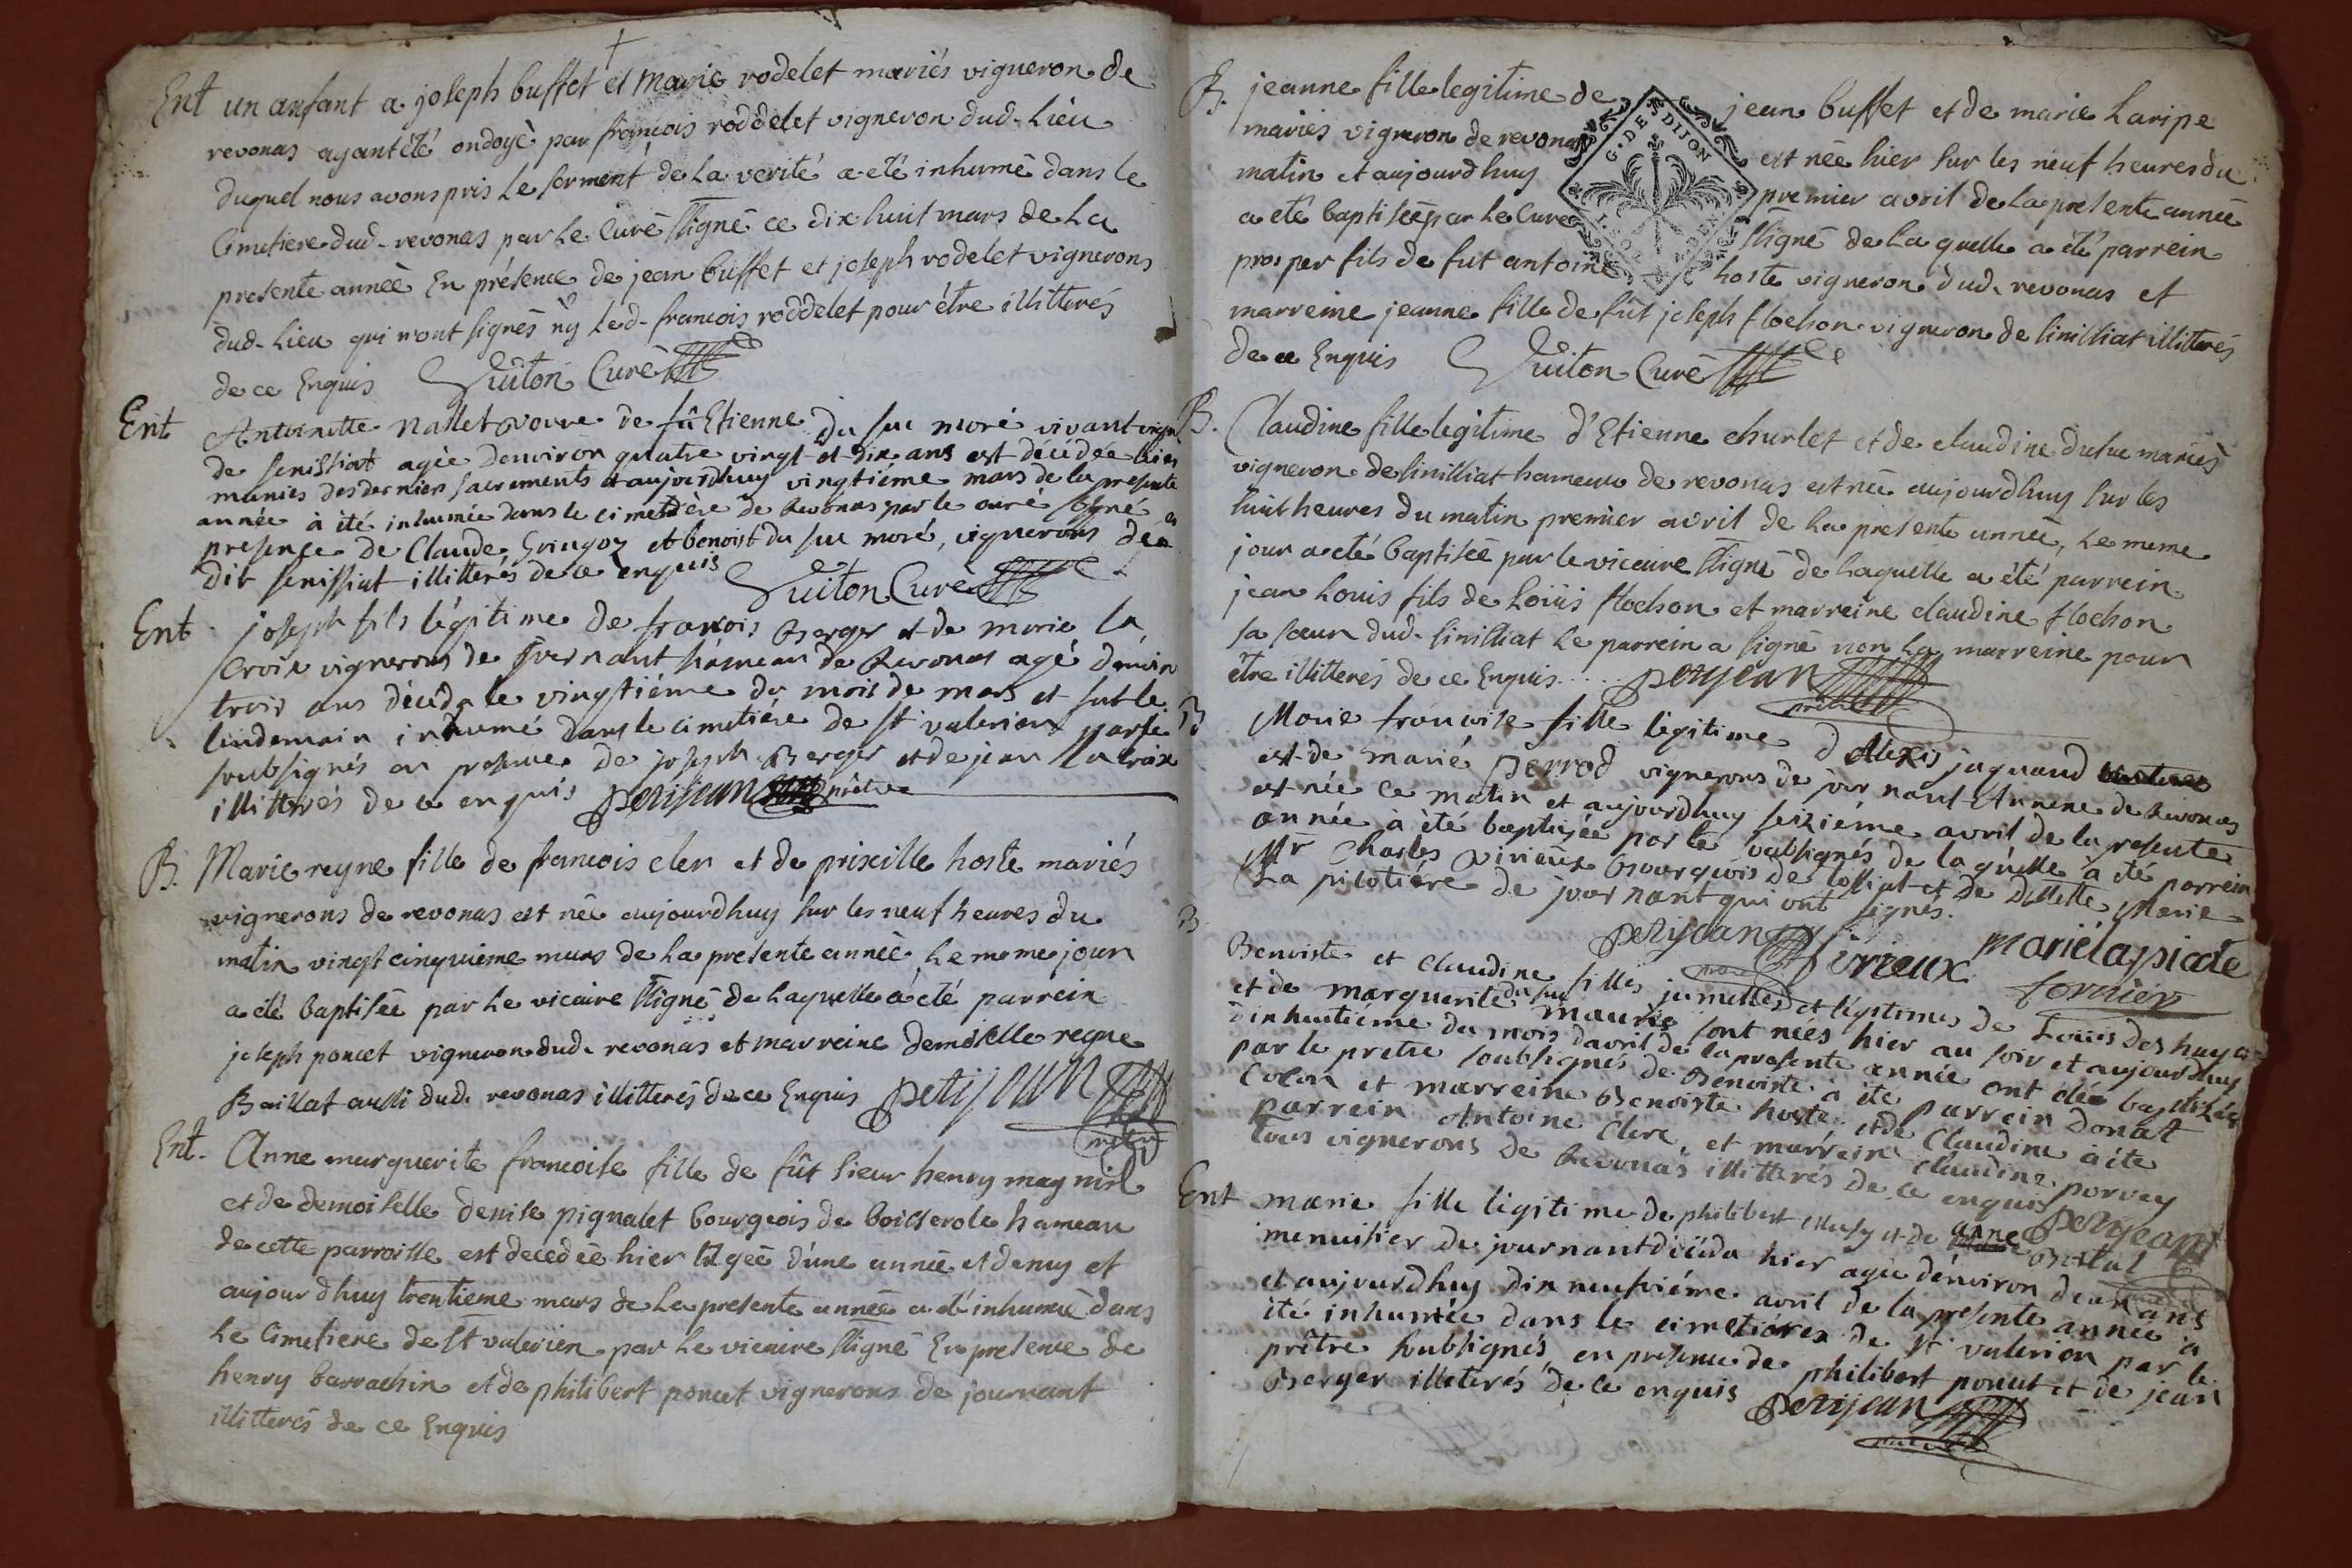 Ent un anfant a joseph buffet et Marie rodelet mariés vigneron de
revonas ayant été ondoyé par francois roddelet vigneron dud. Lieu
duquel nous avons pris le serment de la verité a eté inhumé dans le
Cimetiere dud. revonas par Le Curé ssigné ce dix huit mars de La
presente année En présence de jean buffet et joseph rodelet vignerons
dud. Lieu qui n'ont signés ny led. francois roddelet pour être illitterés
de ce Enquis Guiton Curé
Ent Antoinette Nallet veuve de fû Etienne du suc moré vivant
de senissiat agée denviron quatre vingt et dix ans est décédée hier
munies des dernier sacrements et aujourdhuy vingtiéme mars de la presente
année à été inhumée dans le cimetière de Revonas par le curé signé en
presence de Claude Gringoz et benoist du suc moré, vignerons de
dit senissiat illitterés de ce enquis Guiton Curé
Ent joseph fils légitime de francois Berger et de marie la
Croix vignerons de journant hameau de Revonas agé d'envir
trois ans décéda le vingtiéme du mois de mars et fut le
lendemain inhumé dans le cimetiére de st valerien par le
soubsignés en presence de joseph Berger et de jean la croix
illitterés de ce enquis petijean prêtre
B. Marie reyne fille de francois cler et de priscille hoste mariés
vignerons de revonas est née aujourdhuy sur les neuf heures du
matin vingt cinquieme mars de la presente année, Le meme jour
a été baptisée par le vicaire ssigné de Laquelle a été parrein
joseph poncet vigneron dud. revonas et marreine demoiselle reyne
Baillat aussi dud. revonas illitterés de ce Enquis petijean
prêtre
Ent. Anne marguerite francoise fille de fût sieur henry magnin
et de demoiselle denise pignalet bourgeois de boisserole hameau
de cette parroisse est decedée hier agée d'une année et demy et
aujourdhuy trentieme mars de La presente année a été inhumé dans
Le Cimetiere de St valerien par Le vicaire ssigné En presence de
henry barrachin et de philibert poncet vignerons de journant
illitterés de ce Enquis
B. jeanne fille legitime de jean buffet et de marie Laripe
mariés vigneron de revonas est née hier sur les neuf heures du
matin et aujourdhuy premier avril de La presente année
a eté baptisée par le Curé ssigné de La quelle a été parrein
prosper fils de fut antoine hoste vigneron dud. revonas et
marreine jeanne fille de fût joseph flochon vigneron de sinissiat illitterés
de ce Enquis Guiton Curé
G. DES DIJON
B. Claudine fille legitime d'Etienne churlet et de claudine dusuc mariés
vigneron de sinissiat hameau de revonas est née aujourdhuy sur les
huit heures du matin premier avril de La presente année, Le meme
jour a eté baptisée par le vicaire ssigné de Laquelle a été parrein
jean Louis fils de Loüis flochon et marreine claudine flochon
sa soeur dud. sinissiat Le parrein a signé non La marreine pour
être illitterés de ce Enquis.... petijean
prêtre
B Marie francoise fille légitime d'Alexis jaquand
et de marie perrod vignerons de journant Annexe de Revonas
est née ce matin et aujourdhuy seiziéme avril de la presente
année à été baptisée par le soubsignés de laquelle a été parrein
Mr Charles Sirieux Bourgeois de tossiat et de Dllette Marie
La pilotiere de journant qui ont signés.
petijean Sirieux marie la piate
fornier
B Benoiste et Claudine filles jumelles et légitimes de Loüis
et de marguerite du suc maurie sont nées hier au soir et aujourdhuy
dixhuitieme du mois davril de la presente année ont été baptisées
par le pretre soubsignés de Benoiste à ete parrein Donat
Colon et marreine Benoiste hoste, et de Claudine à éte
parrein Antoine Clerc, et marrein Claudine porvey
tous vignerons de Revonas illitterés de ce enquis petijean
Ent marie fille légitime de philibert et de anne
menuisier de journant décéda hier agée d'environ deux ans
et aujourdhuy dix neufviéme avril de la presente année à
été inhumée dans le cimetiéres de st valerien par le
prêtre soubsignés en presence de philibert poncet et de jean
Berger illiterés de ce enquis petijean